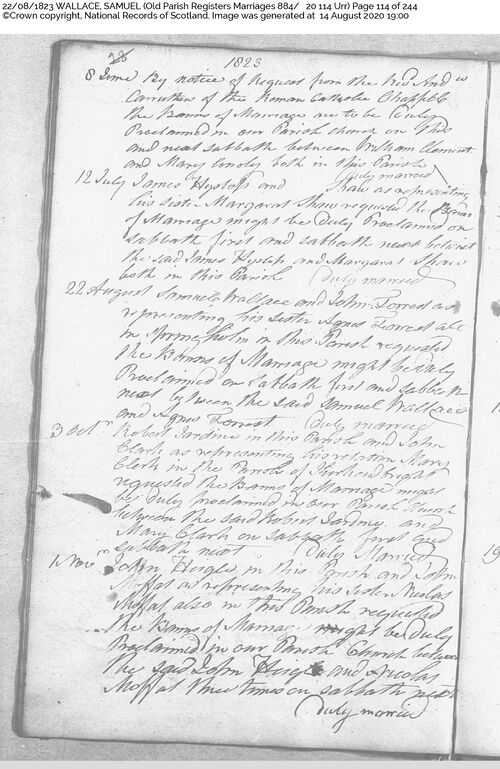 22/08/1823 WALLACE, SAMUEL (Old Parish Registers Marriages 884/ 20 114 Urr) Page 114 of 244
©Crown copyright, National Records of Scotland. Image was generated at 14 August 2020 19:00
28
1823
8 June By notice of Request from the Revd Andw
Carruthers of the Roman Catholic Chapple
the Banns of Marriage are to be Duly
Proclaimed in our Parish church on this
and next sabbath between William Clement
and Mary Conoly both in this Parish
duly married
12 July James Hyslop and Shaw as representing
his sister Margarat Shaw requested the Banns
of Marriage might be Duly Proclaimed on
sabbath first and sabbath next betwixt
the said James Hyslop and Margarat Shaw
both in this Parish duly married
22 August Samuel Wallace and John Forrest as
representing his sister Agnes Forrest all
in Springholm in this Parish requested
the Banns of Marriage might be Duly
Proclaimed on Sabbath first and sabbath
next between the said Samuel Wallace
and Agnes Forrest Duly married
3 Octr Robert Jardine in this Parish and John
Clark as representing his relation Mary
Clerk in the Parish of
requested the Banns of Marriage might
be Duly proclaimed in our Parish Church
between the said Robert Jardine and
Mary Clark on sabbath first and
sabbath next Duly Married
1 Novr John Heigle in this Parish and John
Moffat as representing his sister Nicolas
Moffat also in this Parish requested
the Banns of Marriage might be Duly
Proclaimed in our Parish Church between
the said John Heigle and Nicolas
Moffat three times on sabbath next
Duly married